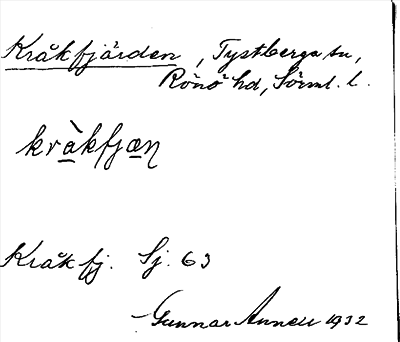 Kråkfjärden, Tystberga sn,
Rönö hd, Sörml. l.
kràkfjæn
Kråkfj. Sj. 63
Gunnar Annell 1932